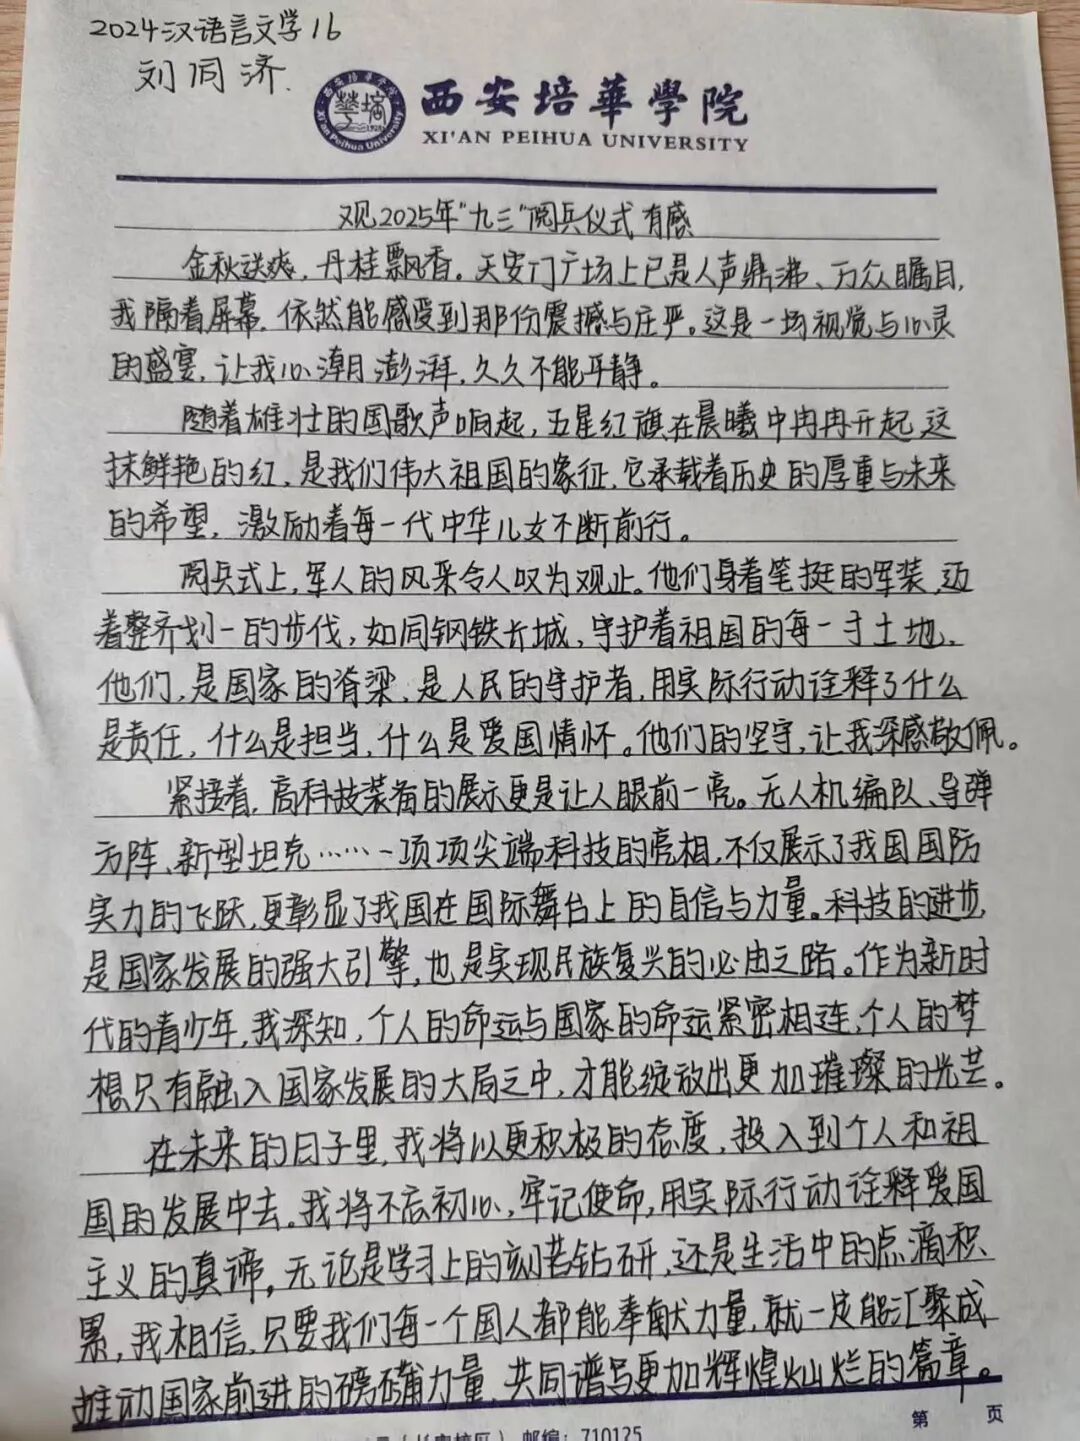 2024汉语言文学16
刘同济.
西安培華學院
XI'AN PEIHUA UNIVERSITY
观2025年"九三"阅兵仪式有感
金秋送爽，丹桂飘香。天安门广场上已是人声鼎沸、万众瞩目，
我隔着屏幕，依然能感受到那份震撼与庄严。这是一场视觉与心灵
的盛宴，让我心潮澎湃，久久不能平静。
随着雄壮的国歌声响起，五星红旗在晨曦中冉冉升起，这
抹鲜艳的红，是我们伟大祖国的象征，它承载着历史的厚重与未来
的希望，激励着每一代中华儿女不断前行。
阅兵式上，军人的风采令人叹为观止。他们身着笔挺的军装，迈
着整齐划一的步伐，如同钢铁长城，守护着祖国的每一寸土地。
他们，是国家的脊梁，是人民的守护者，用实际行动诠释了什么
是责任，什么是担当，什么是爱国情怀。他们的坚守，让我深感敬佩。
紧接着，高科技装备的展示更是让人眼前一亮。无人机编队、导弹
方阵、新型坦克……一项项尖端科技的亮相，不仅展示了我国国防
实力的飞跃，更彰显了我国在国际舞台上的自信与力量。科技的进步，
是国家发展的强大引擎，也是实现民族复兴的必由之路。作为新时
代的青少年，我深知，个人的命运与国家的命运紧密相连，个人的梦
想只有融入国家发展的大局之中，才能绽放出更加璀璨的光芒。
在未来的日子里，我将以更积极的态度，投入到个人和祖
国的发展中去。我将不忘初心，牢记使命，用实际行动诠释爱国
主义的真谛，无论是学习上的刻苦钻研，还是生活中的点滴积
累，我相信，只要我们每一个国人都能奉献力量，就一定能汇聚成
推动国家前进的磅礴力量，共同谱写更加辉煌灿烂的篇章。
第 页
邮编：710125